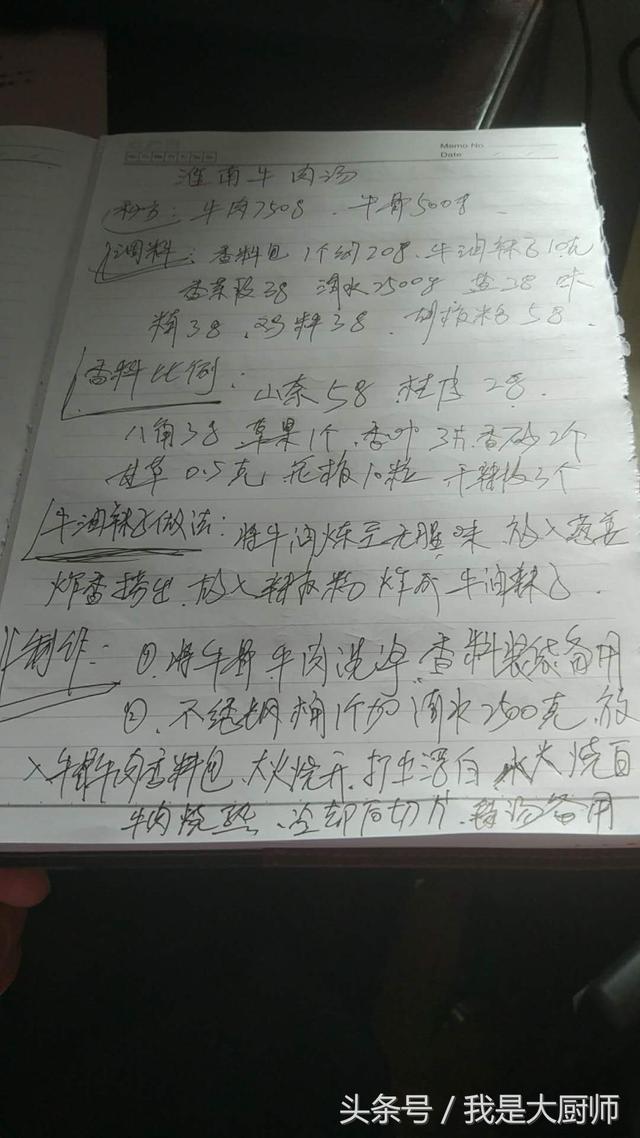 Memo No.
Date
淮南牛肉汤
秘方：牛肉750g、牛骨500g
调料：香料包1个约20g、牛油辣子10克
香菜段3g 清水2500g 盐2g 味
精3g、鸡精3g、胡椒粉5g
香料比例：山奈5g 桂皮2g
八角3g 草果1个、香叶3片、香砂2个
甘草0.5克 花椒10粒 干辣椒3个
牛油辣子做法：将牛油炼至无腥味 放入葱姜
炸香捞出、放入辣椒粉炸成牛油辣子
制作：①、将牛骨、牛肉洗净、香料装袋备用
②、不绣钢桶1个加清水2500克 放
入牛骨牛肉香料包、大火烧开、打出浮白 火烧至
牛肉烧熟、冷却后切片、汤备用
头条号 / 我是大厨师